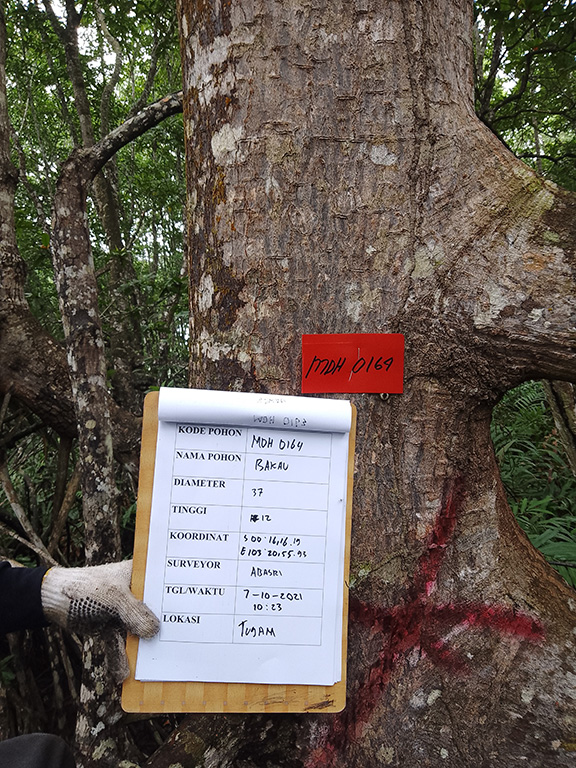 MDH 0164
KODE POHON MDH 0164
NAMA POHON BAKAU
DIAMETER 37
TINGGI 12
KOORDINAT S 00:16,16.19
E 103:20.55.93
SURVEYOR ABASRI
TGL/WAKTU 7-10-2021
10:23
LOKASI TUGAM